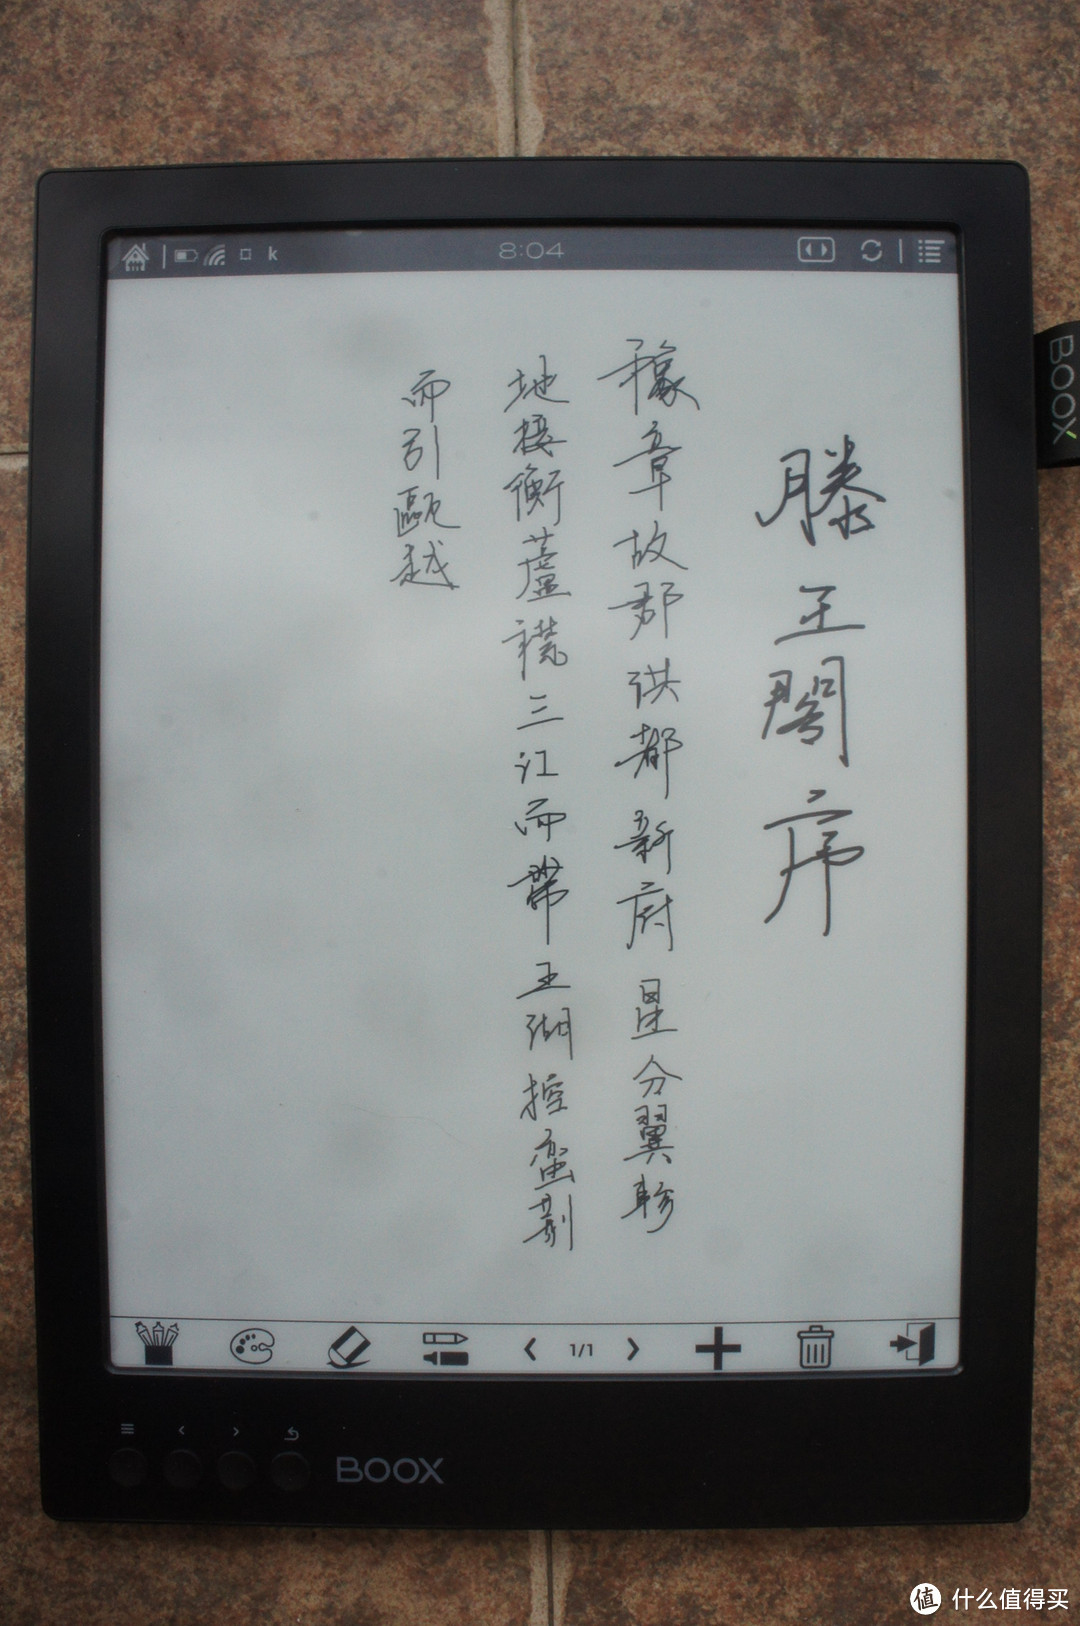 8:04
k
滕王閣序
豫章故郡洪都新府星分翼軫
地接衡蘆襟三江而帶五湖控蛮荆
而引甌越
1/1
BOOX
BOOX
值 什么值得买